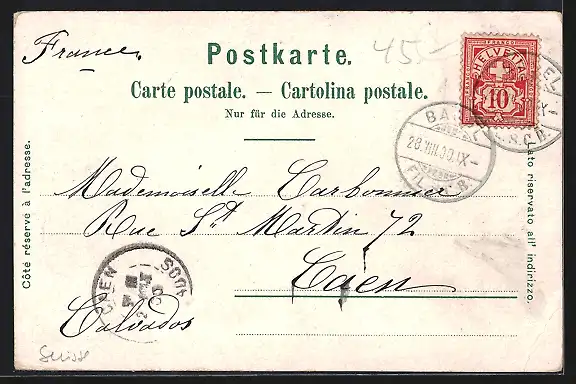 France.
Postkarte.
455-
Carte postale. — Cartolina postale.
Nur für die Adresse.
FRANCO
HELVETIA
10
BAS
28.VIII.00.IX-
FIL. S.C.B.
Côté réservé à l'adresse.
ato riservato all' indirizzo.
Mademoiselle Carbonnier
Rue St Martin 72
Caen
Calvados
CAEN
Suisse